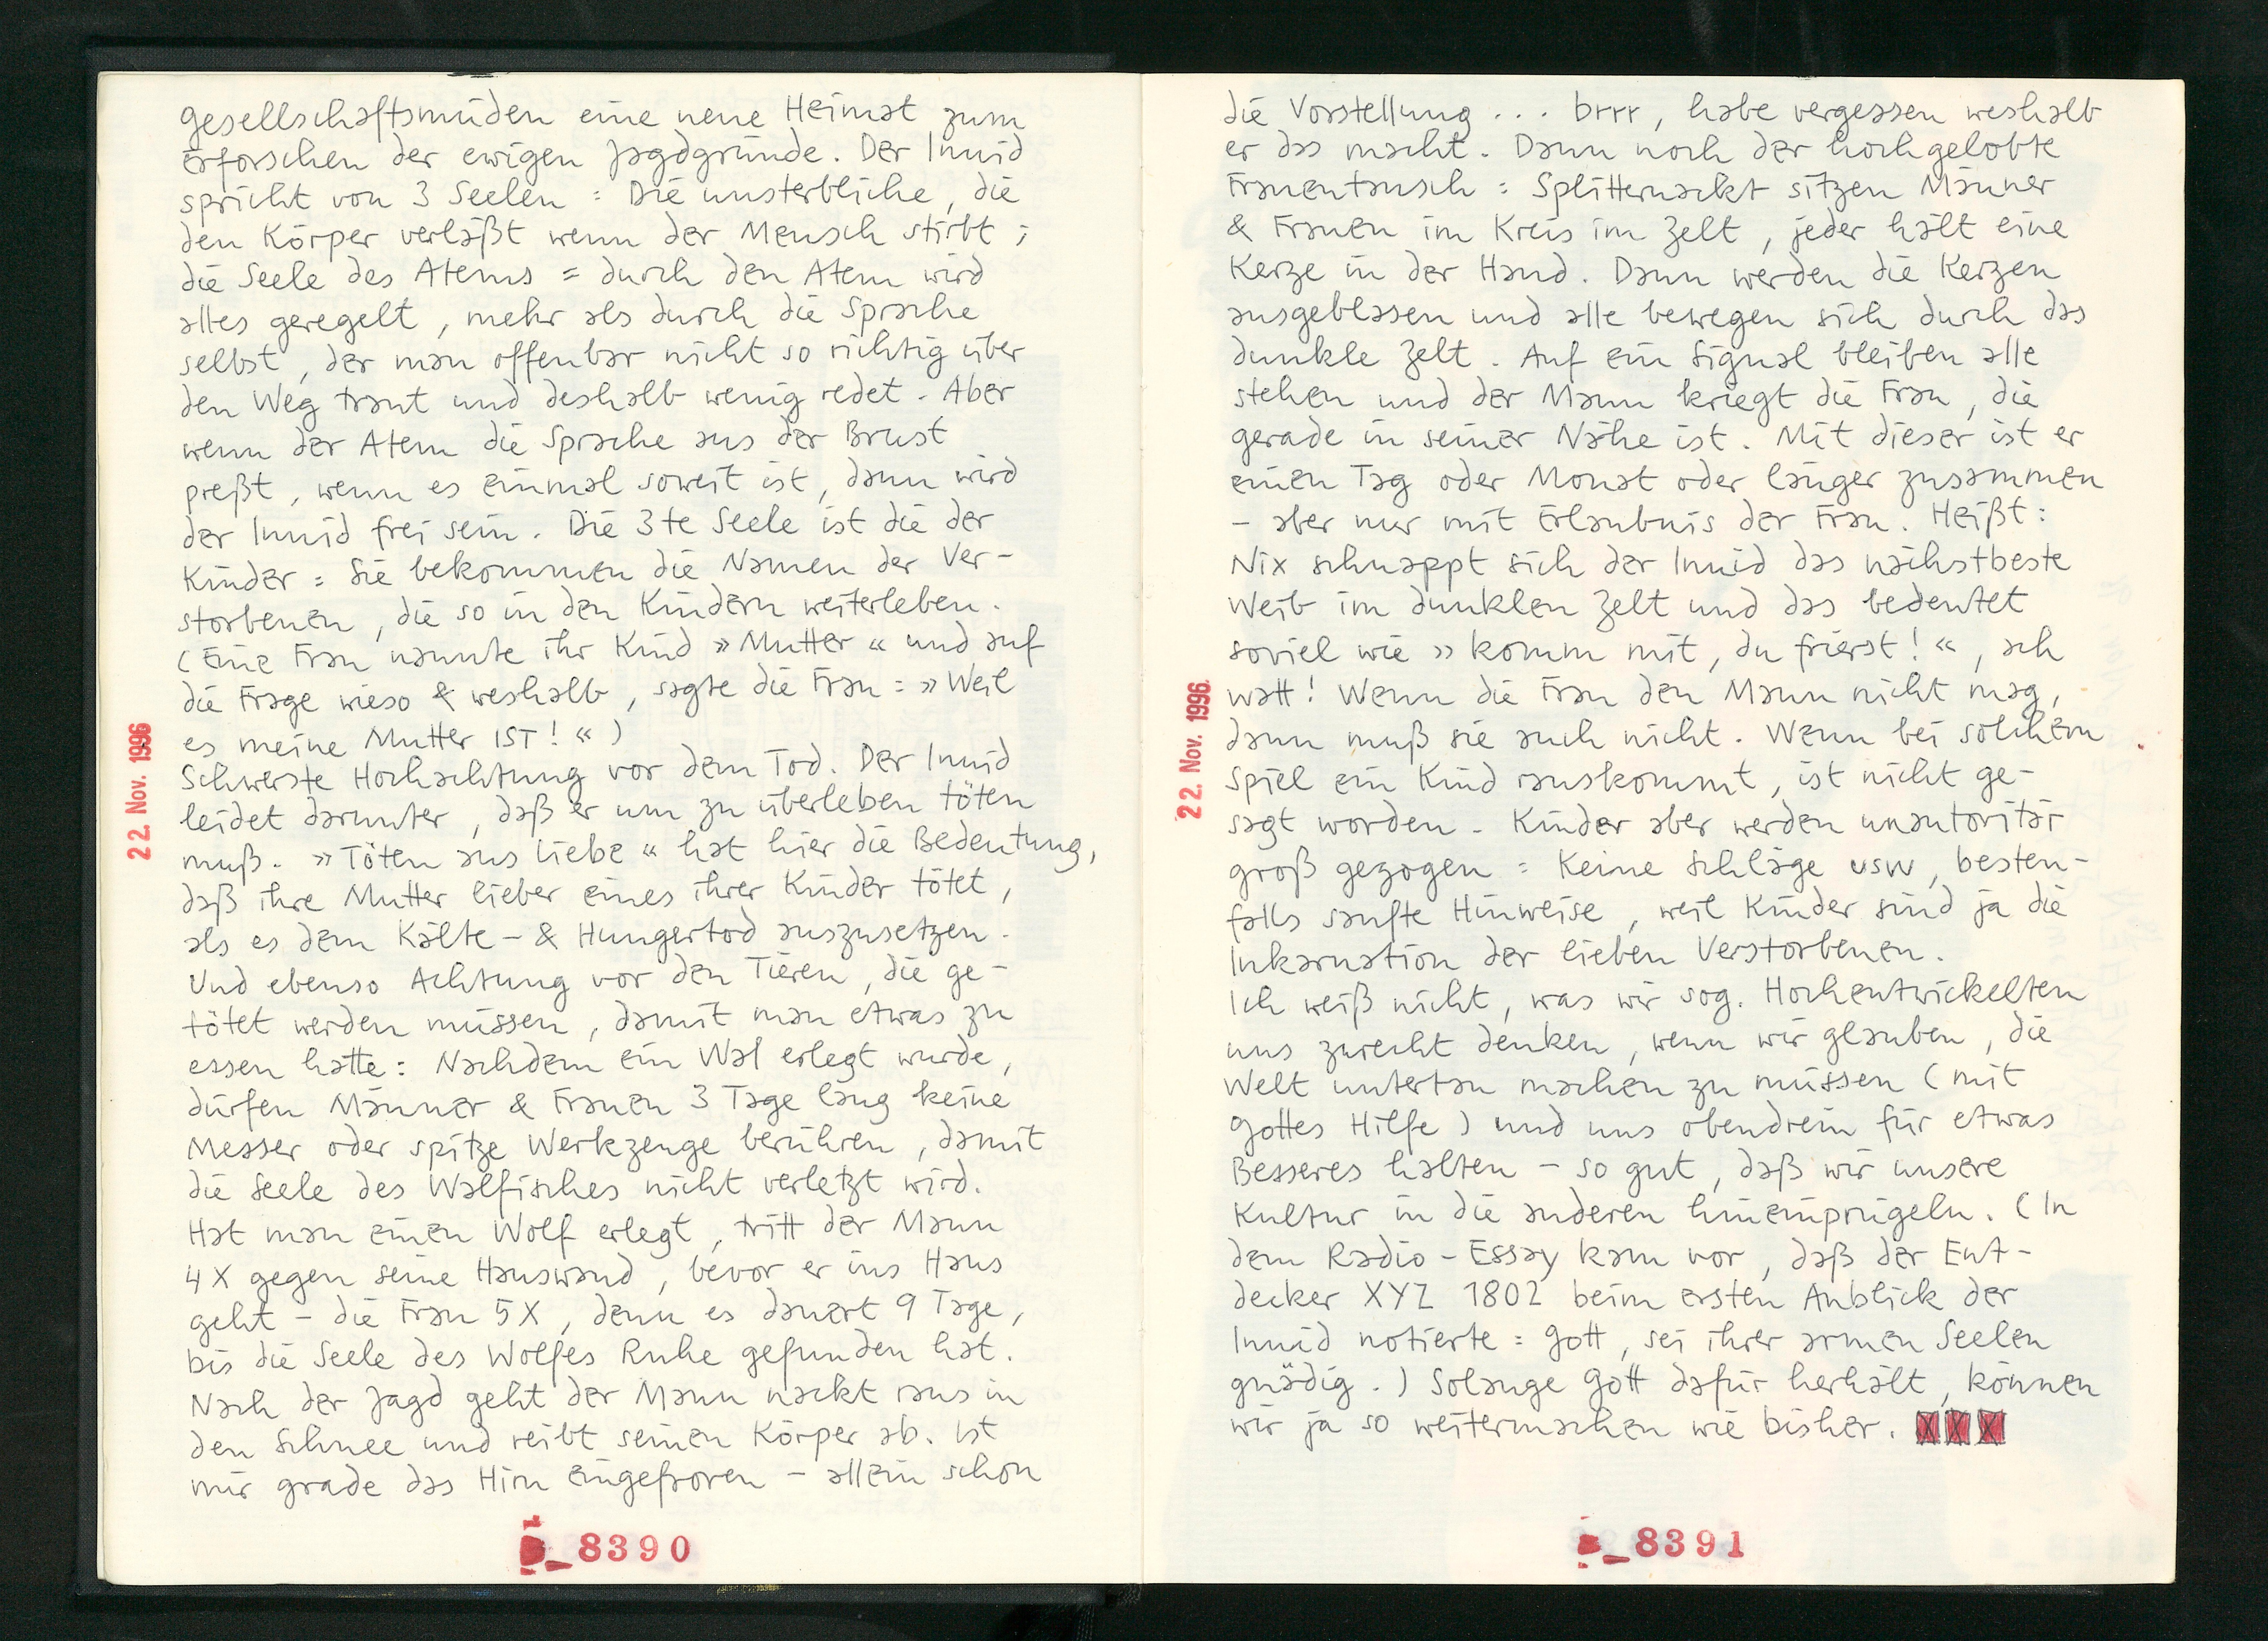 gesellschaftsmüden eine neue Heimat zum
Erforschen der ewigen Jagdgründe. Der Inuid
spricht von 3 Seelen : Die unsterbliche, die
den Körper verläßt wenn der Mensch stirbt ;
die Seele des Atems = durch den Atem wird
alles geregelt, mehr als durch die Sprache
selbst, der man offenbar nicht so richtig über
den Weg traut und deshalb wenig redet. Aber
wenn der Atem die Sprache aus der Brust
preßt, wenn es einmal soweit ist, dann wird
der Inuid frei sein. Die 3te Seele ist die der
Kinder : Sie bekommen die Namen der Ver-
storbenen, die so in den Kindern weiterleben.
(Eine Frau nannte ihr Kind »Mutter« und auf
die Frage wieso & weshalb, sagte die Frau : »Weil
es meine Mutter IST!«)
Schwerste Hochachtung vor dem Tod. Der Inuid
leidet darunter, daß er um zu überleben töten
muß. »Töten aus Liebe« hat hier die Bedeutung,
daß ihre Mutter lieber eines ihrer Kinder tötet,
als es dem Kälte- & Hungertod auszusetzen.
Und ebenso Achtung vor den Tieren, die ge-
tötet werden müssen, damit man etwas zu
essen hatte: Nachdem ein Wal erlegt wurde,
dürfen Männer & Frauen 3 Tage lang keine
Messer oder spitze Werkzeuge berühren, damit
die Seele des Walfisches nicht verletzt wird.
Hat man einen Wolf erlegt, tritt der Mann
4X gegen seine Hauswand, bevor er ins Haus
geht - die Frau 5X, denn es dauert 9 Tage,
bis die Seele des Wolfes Ruhe gefunden hat.
Nach der Jagd geht der Mann nackt raus in
den Schnee und reibt seinen Körper ab. Ist
mir grade das Hirn eingefroren - allein schon
22. Nov. 1996
8390
die Vorstellung ... brrr, habe vergessen weshalb
er das macht. Dann noch der hochgelobte
Frauentausch : Splitternackt sitzen Männer
& Frauen im Kreis im Zelt, jeder hält eine
Kerze in der Hand. Dann werden die Kerzen
ausgeblasen und alle bewegen sich durch das
dunkle Zelt. Auf ein Signal bleiben alle
stehen und der Mann kriegt die Frau, die
gerade in seiner Nähe ist. Mit dieser ist er
einen Tag oder Monat oder länger zusammen
- aber nur mit Erlaubnis der Frau. Heißt:
Nix schnappt sich der Inuid das nächstbeste
Weib im dunklen Zelt und das bedeutet
soviel wie »komm mit, du frierst!«, ach
watt! Wenn die Frau den Mann nicht mag,
dann muß sie auch nicht. Wenn bei solchem
Spiel ein Kind rauskommt, ist nicht ge-
sagt worden. Kinder aber werden unautoritär
groß gezogen : Keine Schläge usw, besten-
falls sanfte Hinweise, weil Kinder sind ja die
Inkarnation der lieben Verstorbenen.
Ich weiß nicht, was wir sog. Hochentwickelten
uns zurecht denken, wenn wir glauben, die
Welt untertan machen zu müssen (mit
Gottes Hilfe) und uns obendrein für etwas
Besseres halten - so gut, daß wir unsere
Kultur in die anderen hineinprügeln. (In
dem Radio-Essay kam vor, daß der Ent-
decker XYZ 1802 beim ersten Anblick der
Inuid notierte : Gott, sei ihrer armen Seelen
gnädig.) Solange Gott dafür herhält, können
wir ja so weitermachen wie bisher. XXX
22. Nov. 1996
8391